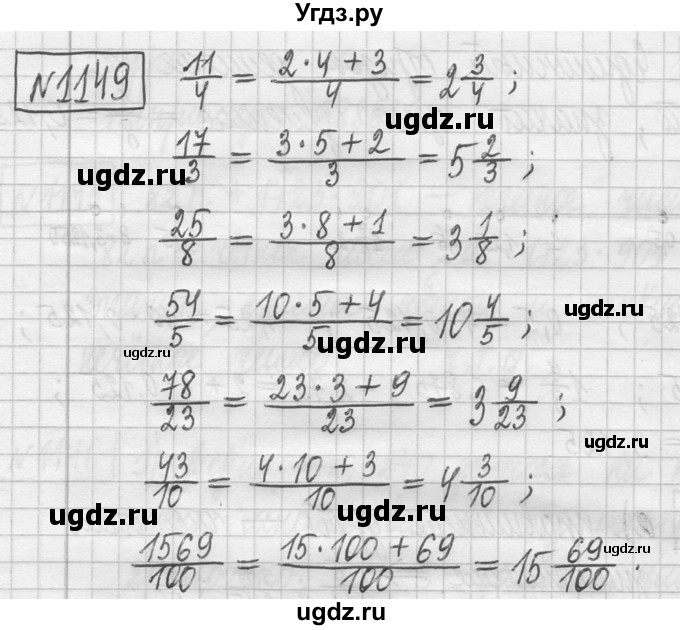 Угдз.ру
№1149
11/4 = (2·4+3)/4 = 2 3/4 ;
ugdz.ru
17/3 = (3·5+2)/3 = 5 2/3 ;
ugdz.ru
ugdz.ru
25/8 = (3·8+1)/8 = 3 1/8 ;
ugdz.ru
54/5 = (10·5+4)/5 = 10 4/5 ;
ugdz.ru
ugdz.ru
78/23 = (23·3+9)/23 = 3 9/23 ;
ugdz.ru
43/10 = (4·10+3)/10 = 4 3/10 ;
ugdz.ru
ugdz.ru
1569/100 = (15·100+69)/100 = 15 69/100 .
ugdz.ru
ugdz.ru